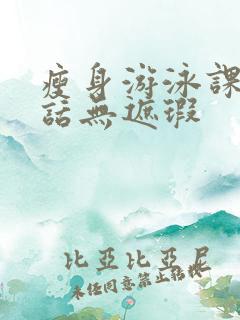 瘦身游泳課
話無遮瑕
比亞比亞尼
未經同意禁止轉載